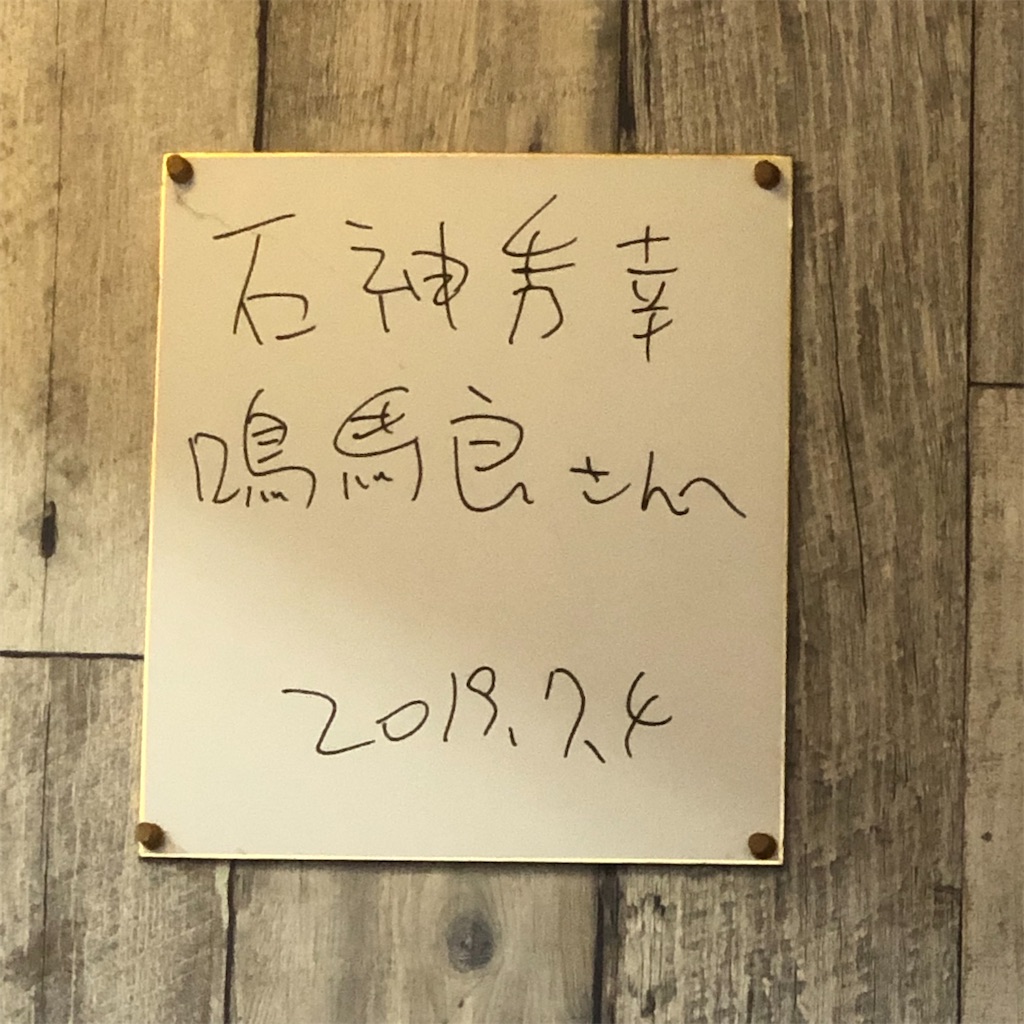 石神秀幸
鳴馬良さんへ
2019.7.4